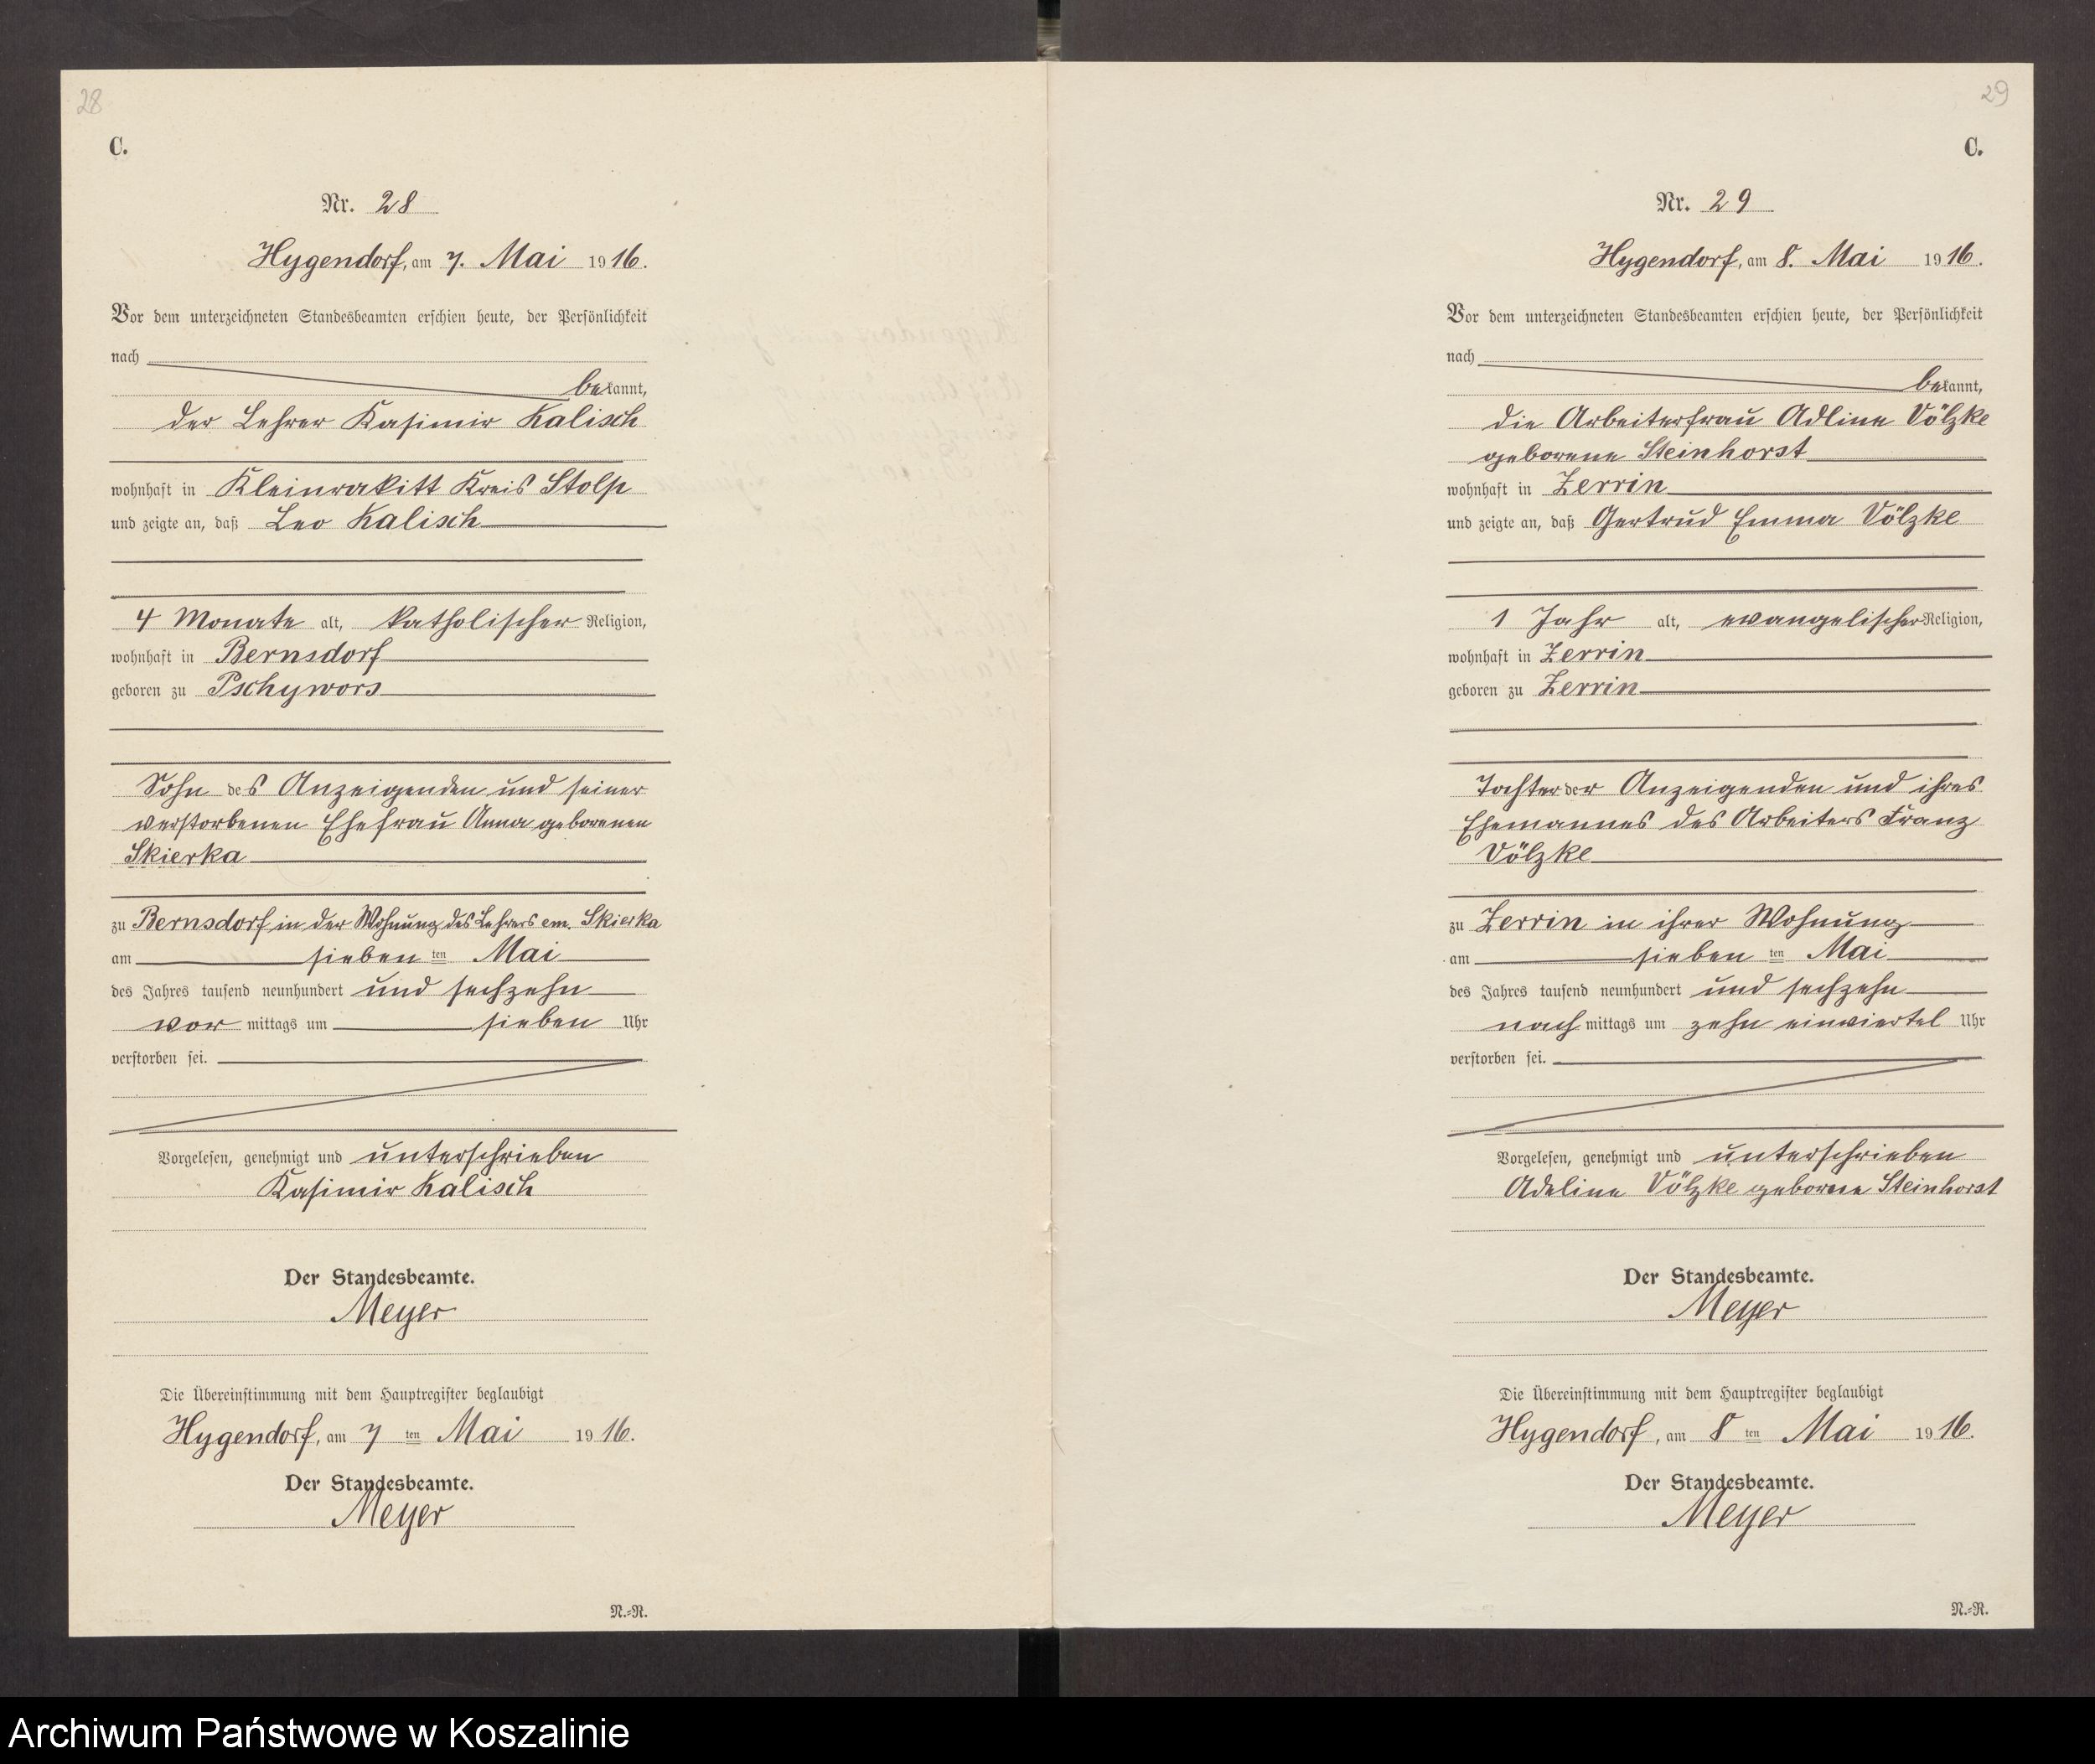 28
C.
Nr. 28
Hygendorf, am 7. Mai 1916.
Vor dem unterzeichneten Standesbeamten erschien heute, der Persönlichkeit
nach
bekannt,
der Lehrer Kasimir Kalisch
wohnhaft in Kleinrakitt Kreis Stolp
und zeigte an, daß Leo Kalisch
4 Monate alt, katholischer Religion,
wohnhaft in Bernsdorf
geboren zu Pschywors
Sohn des Anzeigenden und seiner
verstorbenen Ehefrau Anna geborenen
Skierka
zu Bernsdorf in der Wohnung des Lehrers em. Skierka
am sieben ten Mai
des Jahres tausend neunhundert und sechzehn
vor mittags um sieben Uhr
verstorben sei.
Vorgelesen, genehmigt und unterschrieben
Kasimir Kalisch
Der Standesbeamte.
Meyer
Die Übereinstimmung mit dem Hauptregister beglaubigt
Hygendorf, am 7 ten Mai 1916.
Der Standesbeamte.
Meyer
N.=R.
29
C.
Nr. 29
Hygendorf, am 8. Mai 1916.
Vor dem unterzeichneten Standesbeamten erschien heute, der Persönlichkeit
nach
bekannt,
die Arbeiterfrau Adline Völzke
geborene Steinhorst
wohnhaft in Zerrin
und zeigte an, daß Gertrud Emma Völzke
1 Jahr alt, evangelischer Religion,
wohnhaft in Zerrin
geboren zu Zerrin
Tochter der Anzeigenden und ihres
Ehemannes des Arbeiters Franz
Völzke
zu Zerrin in ihrer Wohnung
am sieben ten Mai
des Jahres tausend neunhundert und sechzehn
nach mittags um zehn einviertel Uhr
verstorben sei.
Vorgelesen, genehmigt und unterschrieben
Adeline Völzke geborene Steinhorst
Der Standesbeamte.
Meyer
Die Übereinstimmung mit dem Hauptregister beglaubigt
Hygendorf, am 8 ten Mai 1916.
Der Standesbeamte.
Meyer
N.=R.
Archiwum Państwowe w Koszalinie